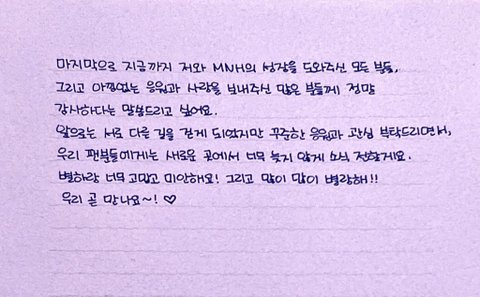 마지막으로 지금까지 저와 MNH의 성장을 도와주신 모든 분들,
그리고 아낌없는 응원과 사랑을 보내주신 많은 분들께 정말
감사하다는 말씀드리고 싶어요.
앞으로는 서로 다른 길을 걷게 되었지만 꾸준한 응원과 관심 부탁드리면서,
우리 팬분들에게는 새로운 곳에서 너무 늦지 않게 소식 전할게요.
별하랑 너무 고맙고 미안해요! 그리고 많이 많이 별랑해!!
우리 곧 만나요~! ♡